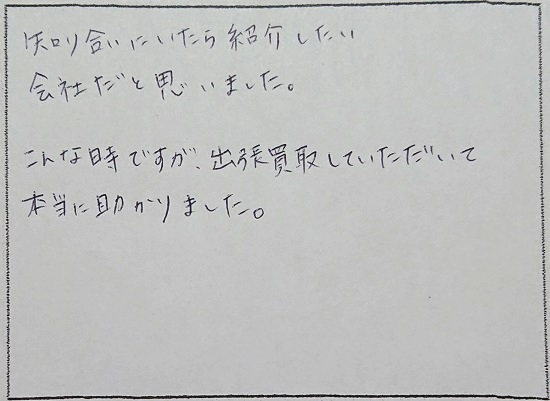 知り合いにいたら紹介したい
会社だと思いました。
こんな時ですが、出張買取していただいて
本当に助かりました。